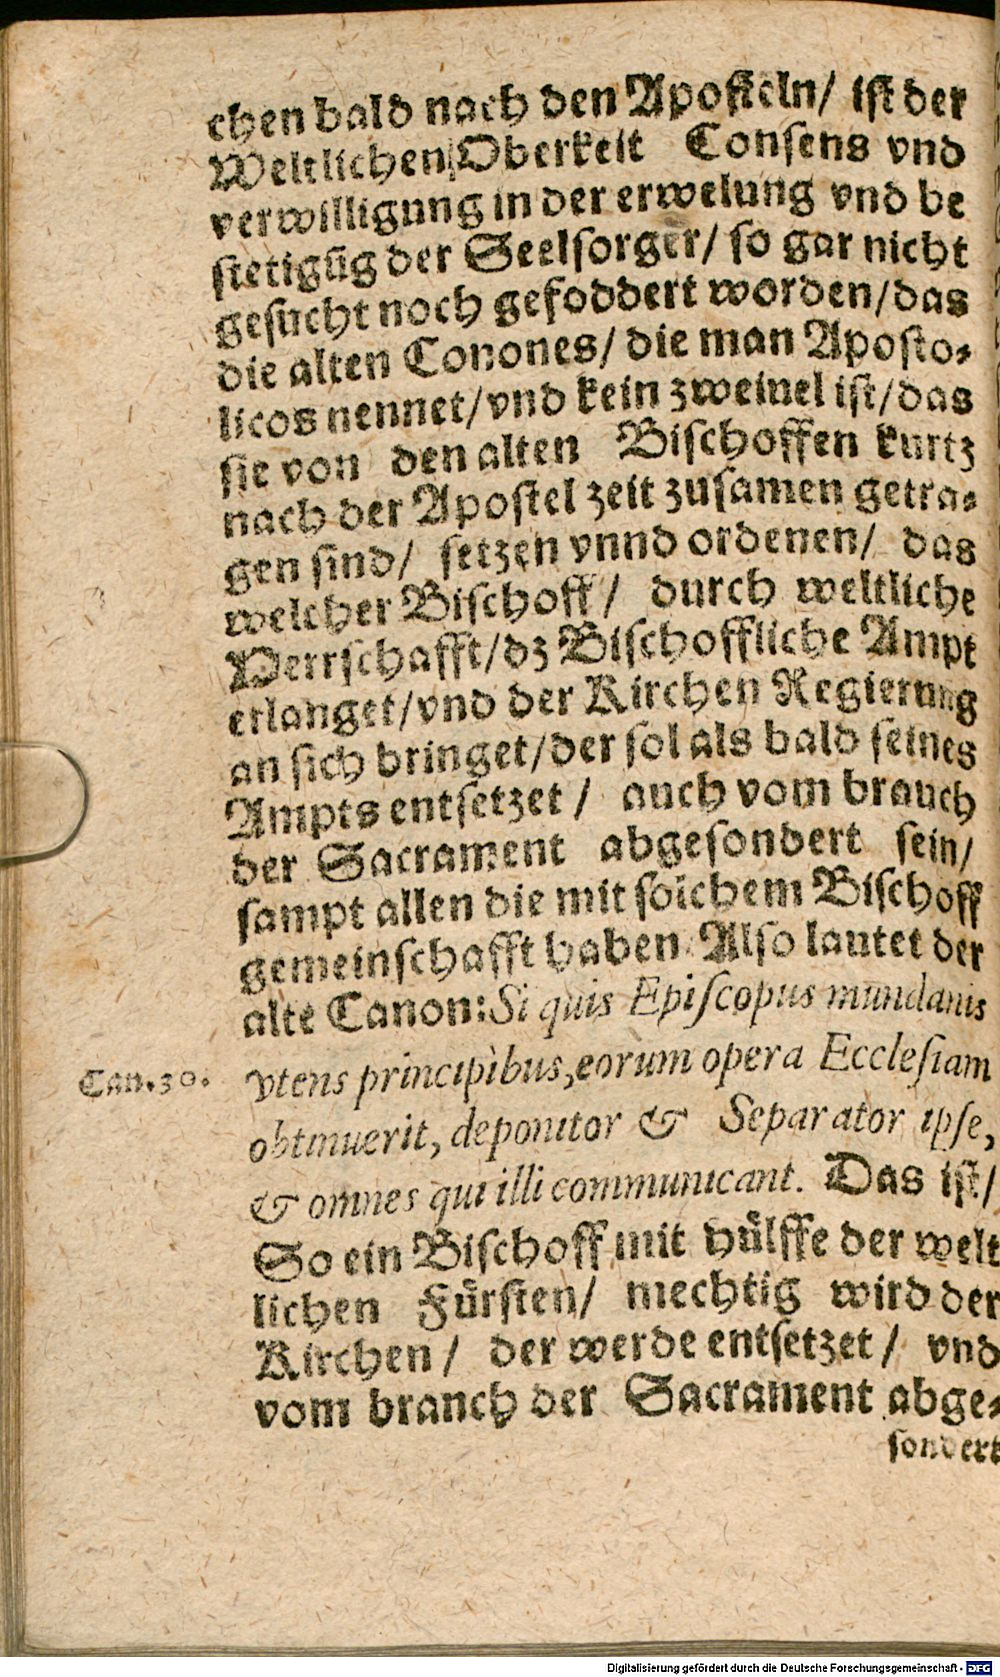 chen bald nach den Aposteln/ ist der
Weltlichen Oberkeit Consens vnd
verwilligung in der erwelung vnd be
stetigũg der Seelsorger/ so gar nicht
gesucht noch gefoddert worden/das
die alten Conones/ die man Aposto⸗
licos nennet/vnd kein zweiuel ist/das
sie von den alten Bischoffen kurtz
nach der Apostel zeit zusamen getra⸗
gen sind/ setzen vnnd ordenen/ das
welcher Bischoff/ durch weltliche
Herrschafft/dz Bischoffliche Ampt
erlanget/vnd der Kirchen Regierung
an sich bringet/der sol als bald seines
Ampts entsetzet/ auch vom brauch
der Sacrament abgesondert sein/
sampt allen die mit solchem Bischoff
gemeinschafft haben. Also lautet der
alte Canon: Si quis Episcopus mundanis
Can. 30. vtens principibus, eorum opera Ecclesiam
obtinuerit, deponitor & Separator ipse,
& omnes qui illi communicant. Das ist/
So ein Bischoff mit hülffe der welt
lichen Fürsten/ mechtig wird der
Kirchen/ der werde entsetzet/ vnd
vom branch der Sacrament abge⸗
sondert
Digitalisierung gefördert durch die Deutsche Forschungsgemeinschaft - DFG